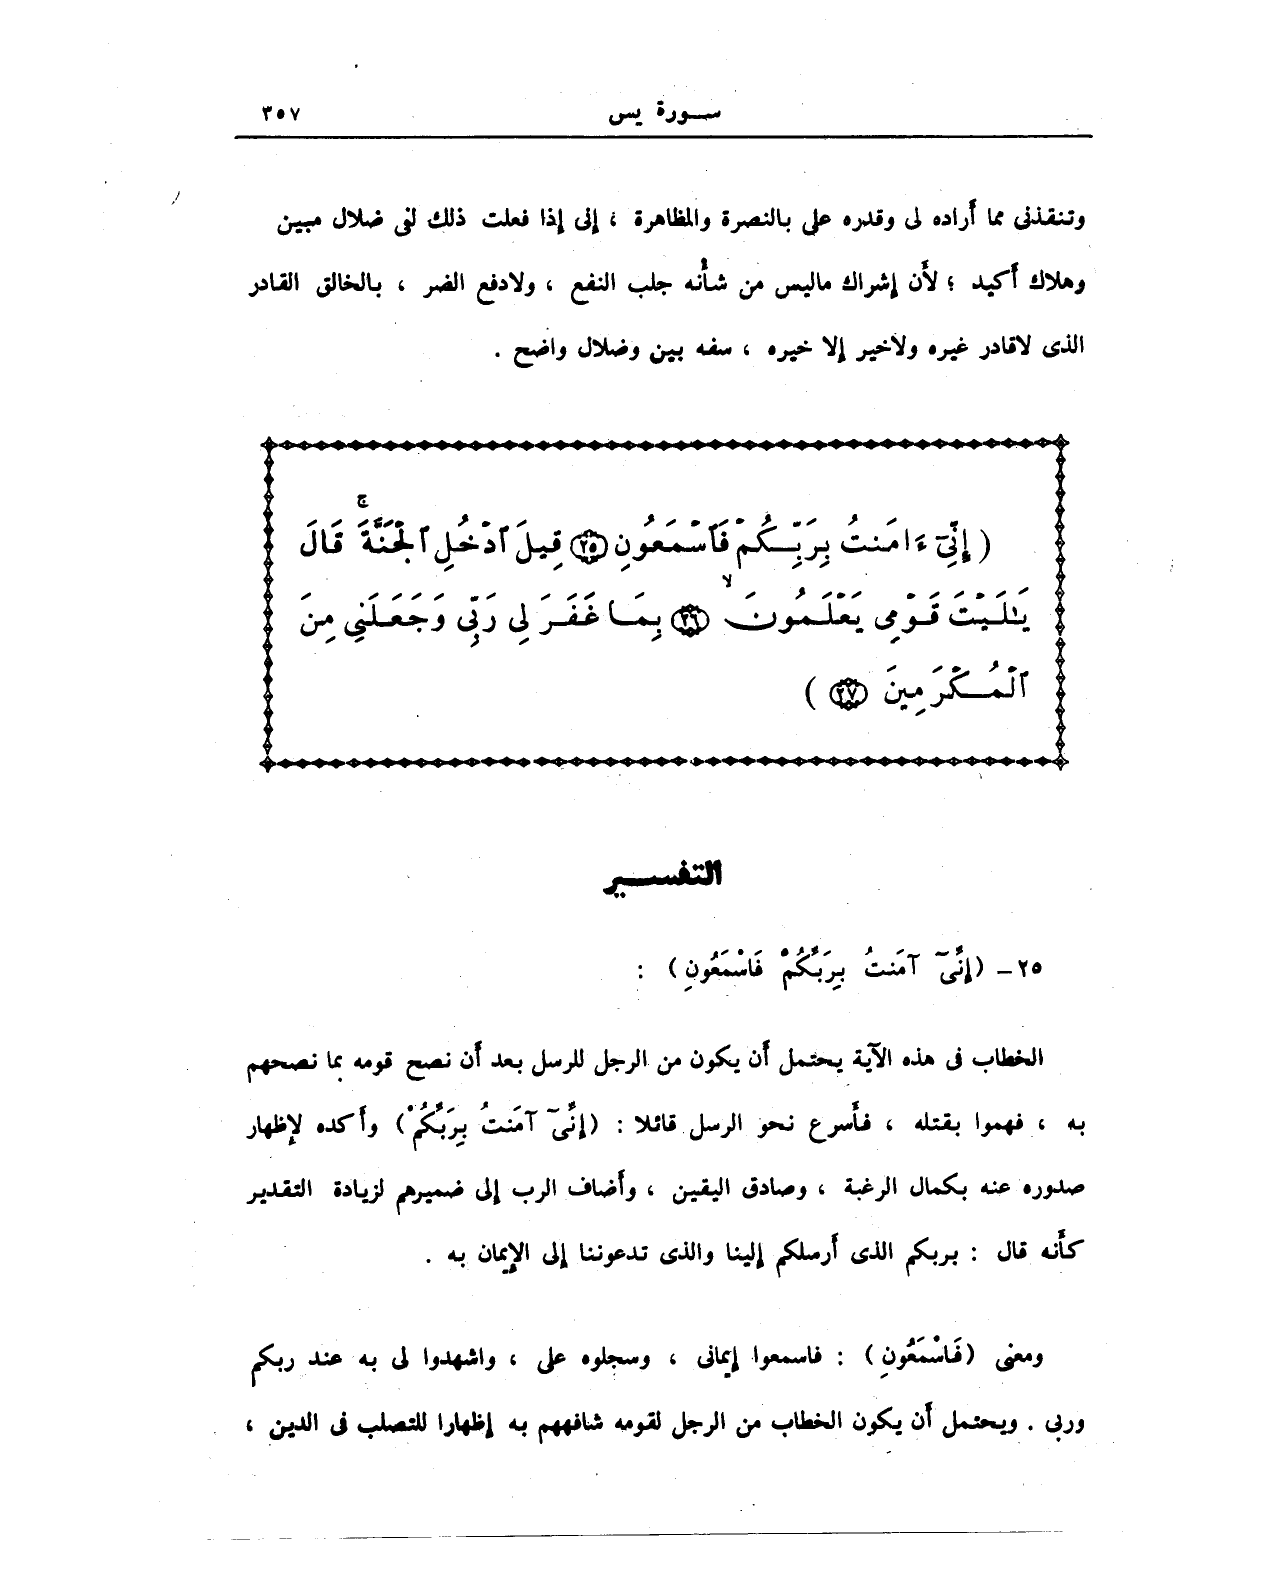 سورة يس ٣٥٧
وتنقذنى مما أراده لى وقدره على بالنصرة والمظاهرة ، إنى إذا فعلت ذلك لفى ضلال مبين
وهلاك أكيد ؛ لأن إشراك ماليس من شأنه جلب النفع ، ولادفع الضر ، بالخالق القادر
الذى لاقادر غيره ولاخير إلا خيره ، سفه بين وضلال واضح .
( إِنِّىٓ ءَامَنتُ بِرَبِّكُمۡ فَٱسۡمَعُونِ ٢٥ قِيلَ ٱدۡخُلِ ٱلۡجَنَّةَۚ قَالَ
يَٰلَيۡتَ قَوۡمِى يَعۡلَمُونَۙ ٢٦ بِمَا غَفَرَ لِى رَبِّى وَجَعَلَنِى مِنَ
ٱلۡمُكۡرَمِينَ ٢٧ )
التفسير
٢٥ – (إِنِّىٓ آمَنتُ بِرَبِّكُمْ فَاسْمَعُونِ) :
الخطاب فى هذه الآية يحتمل أن يكون من الرجل للرسل بعد أن نصح قومه بما نصحهم
به ، فهموا بقتله ، فأسرع نحو الرسل قائلا : (إِنِّىٓ آمَنتُ بِرَبِّكُمْ) وأكده لإظهار
صدوره عنه بكمال الرغبة ، وصادق اليقين ، وأضاف الرب إلى ضميرهم لزيادة التقدير
كأنه قال : بربكم الذى أرسلكم إلينا والذى تدعوننا إلى الإيمان به .
ومعنى (فَاسْمَعُونِ) : فاسمعوا إيمانى ، وسجلوه على ، واشهدوا لى به عند ربكم
وربى . ويحتمل أن يكون الخطاب من الرجل لقومه شافههم به إظهارا للتصلب فى الدين ،